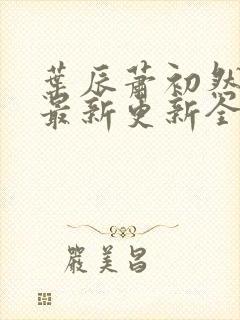 葉辰蕭初然
最新更新全
嚴美昌